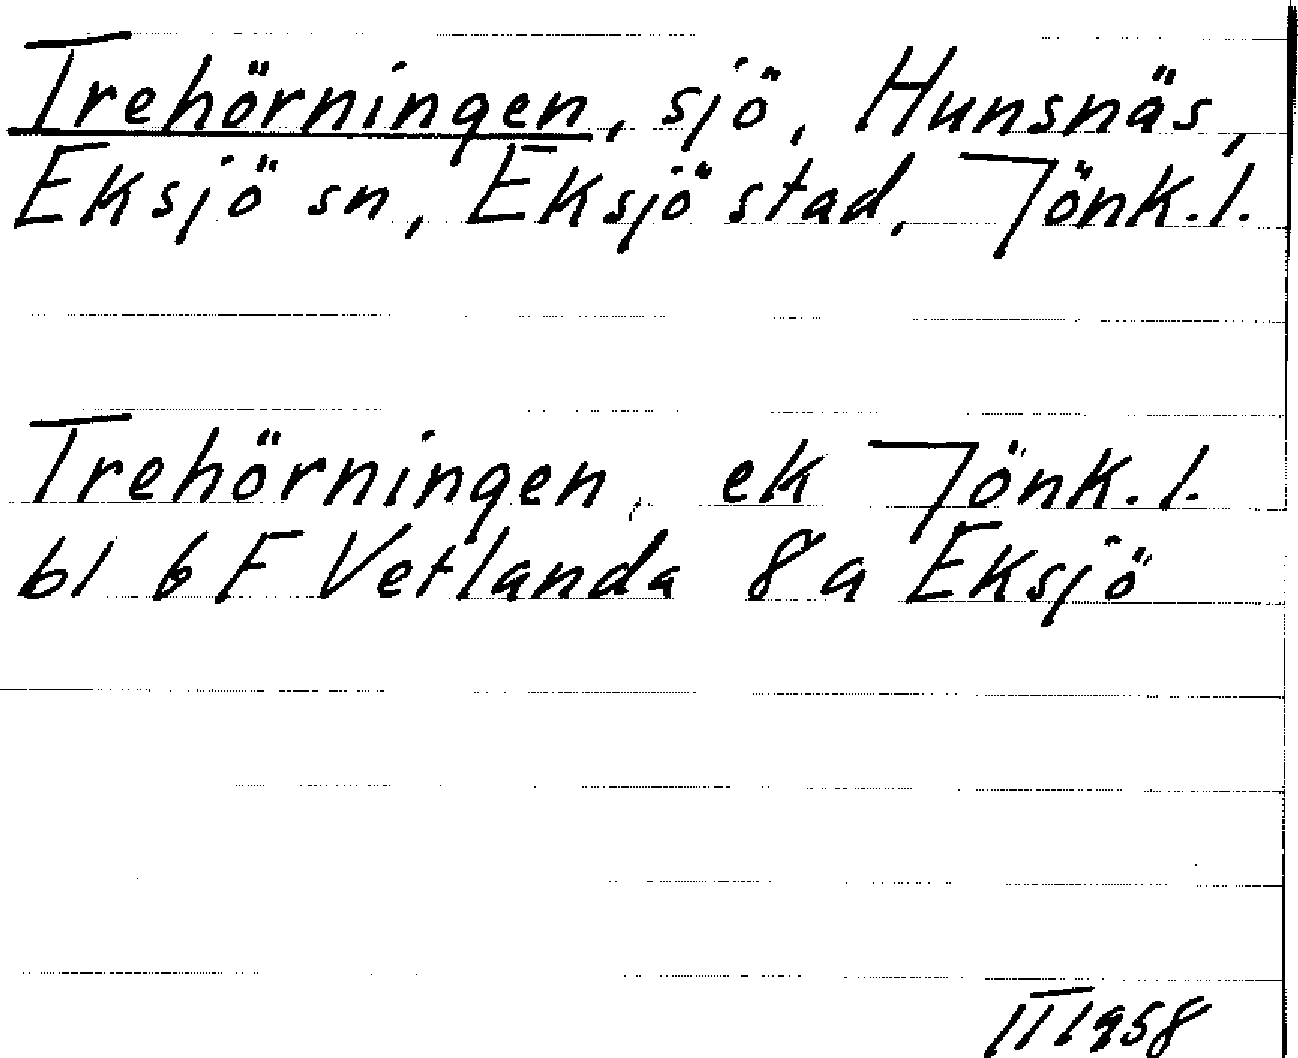 Trehörningen, sjö, Hunsnäs,
Eksjö sn, Eksjö stad, Jönk.l.
Trehörningen, ek Jönk.l.
bl 6 F Vetlanda 8 a Eksjö